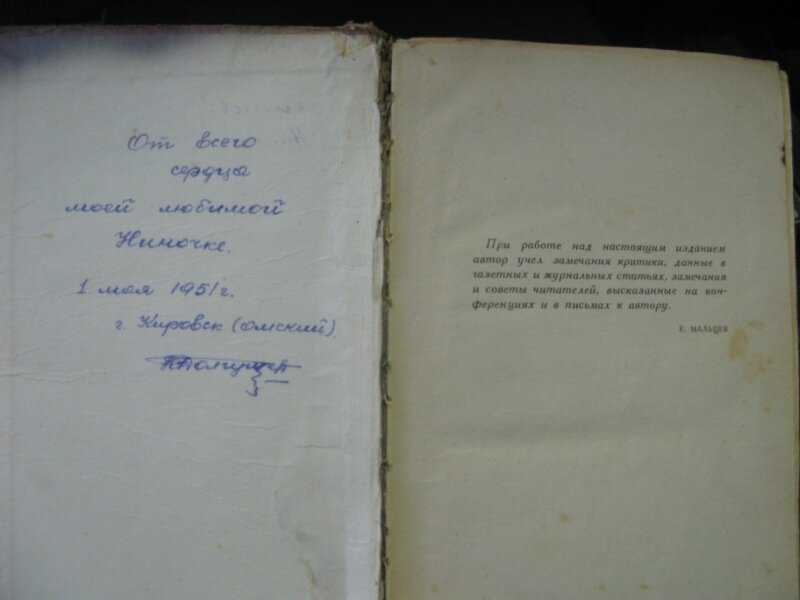 От всего
сердца
моей любимой
Ниночке.
1 мая 1951 г.
г. Кировск (омский).
При работе над настоящим изданием
автор учел замечания критики, данные в
газетных и журнальных статьях, замечания
и советы читателей, высказанные на кон-
ференциях и в письмах к автору.
Е. МАЛЬЦЕВ